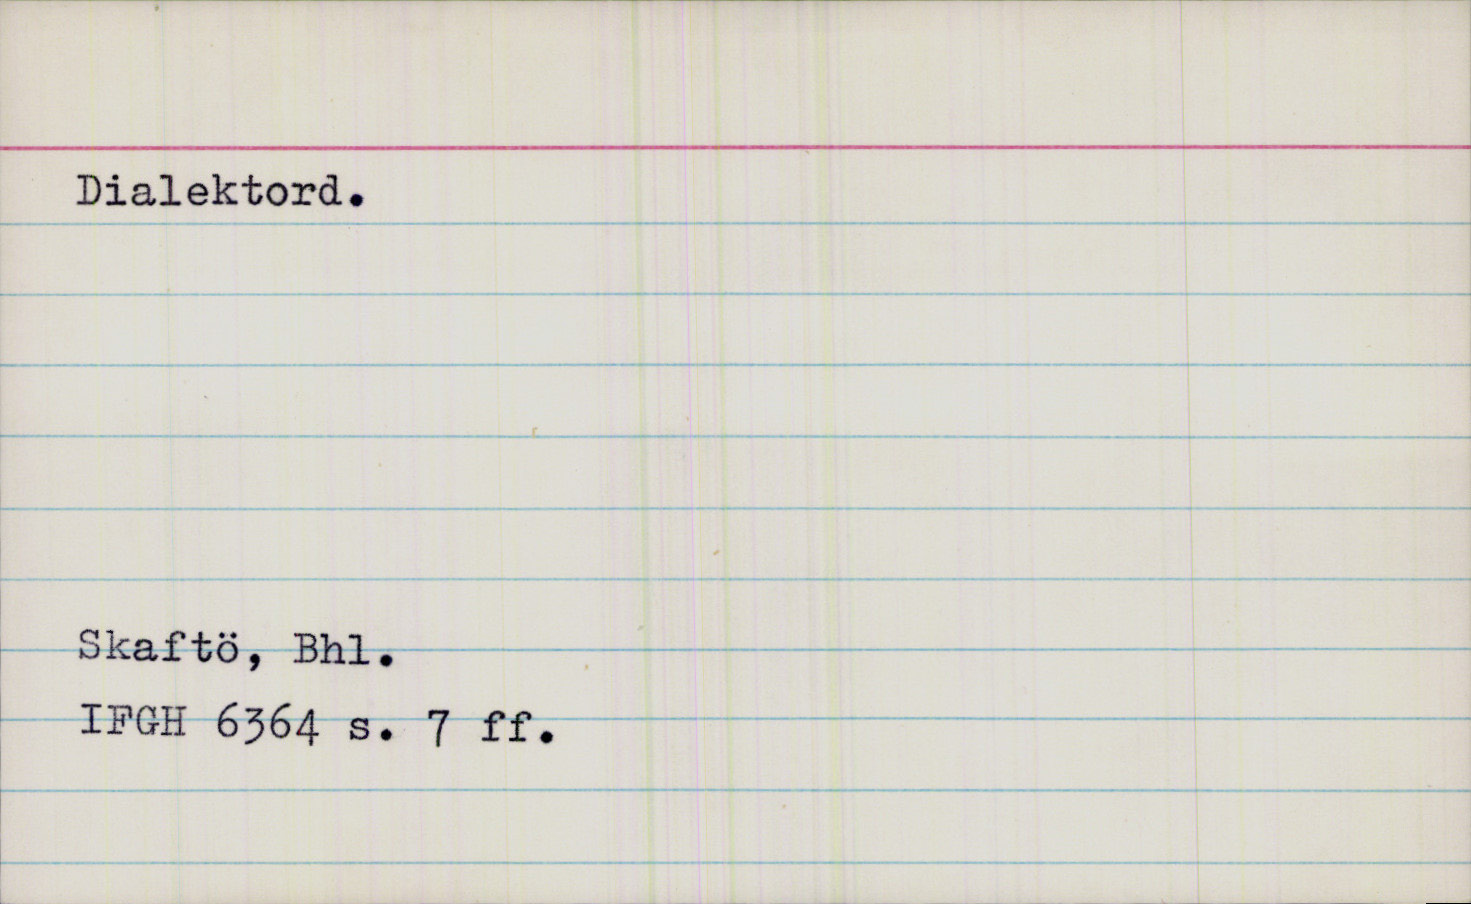 Dialektord.
Skaftö, Bhl.
IFGH 6364 s. 7 ff.